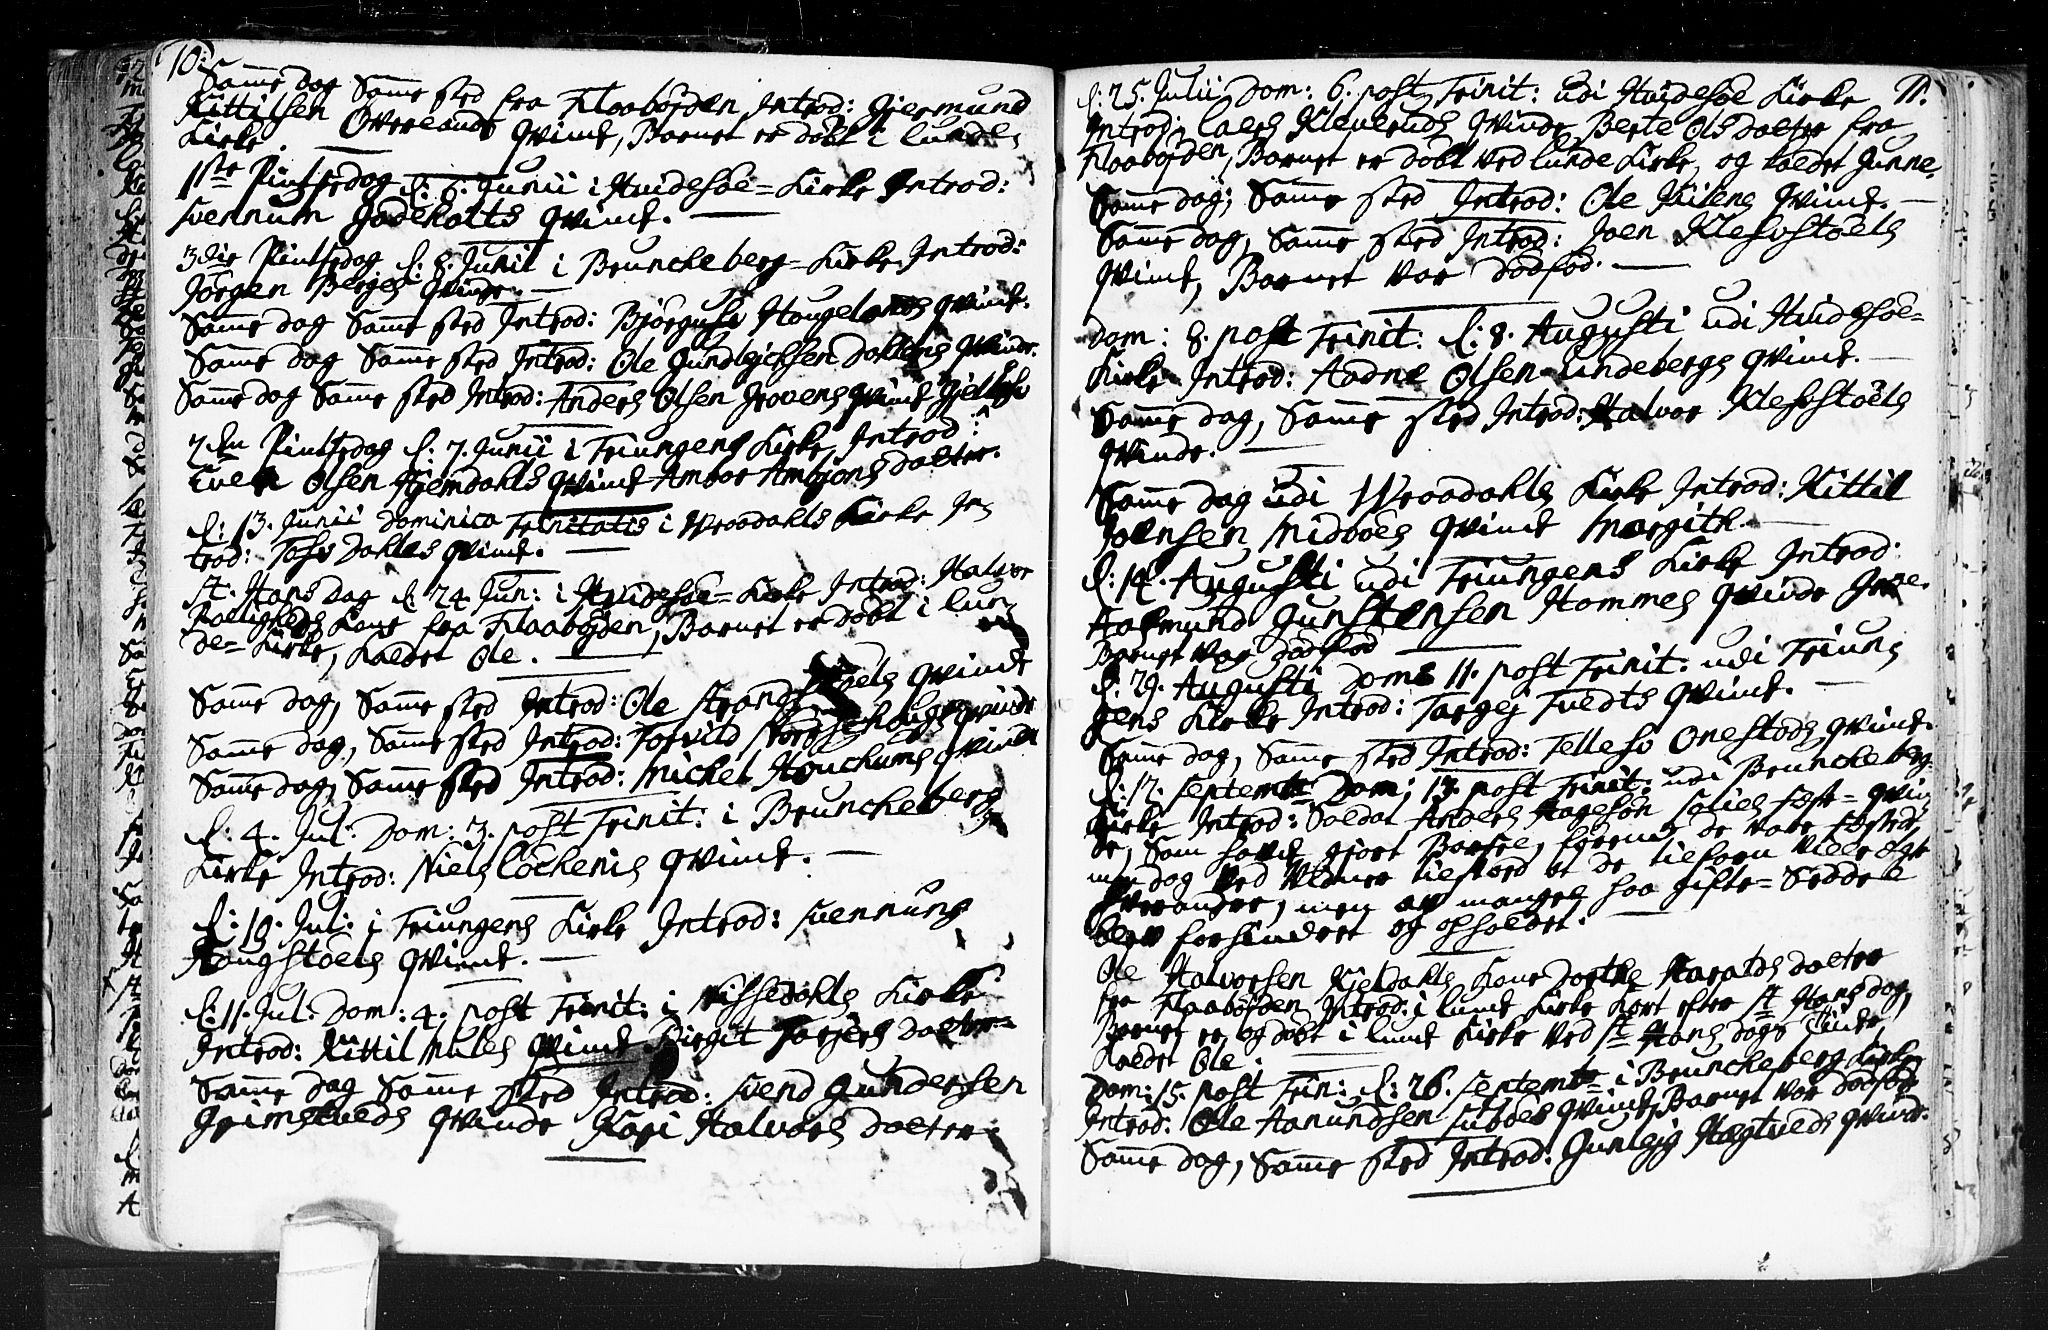 10.
Samme dag Samme sted fra Flaabÿgden Introd: Gjermund
Kittilsen Overlands Qvinde, Barnet er døbt i Lunde
Kirke.
1ste Pintzedag d: 6. Junii i Hvidesøe-Kirke Introd:
Svennum Godeholts Qvinde.
3die Pintzedag d: 8. Junii i Bruncheberg-Kirke Introd:
Jørgen Berges Qvinde.
Samme dag Samme sted Introd: Bjørgulv Haugelands Qvinde.
Samme dag Samme sted Introd: Ole Gundleichsen Dahlens Qvinde.
Samme dag Samme sted Introd: Anders Olsen Grovens Qvinde
2den Pintzedag d: 7. Junii i Triungens Kirke, Introd:
Even Olsen Qvinde Ambor Ambjøns daatter.
d: 13. Junii Dominica Trinitatis i Vraadahls Kirke In-
trod: Dahles Qvinde.
St. Hans Dag d. 24. Jun: i Hvidesøe-Kirke Introd: Halvor
Kone fra Flaabÿgden, Barnet er døbt i Lun-
de-Kirke, kaldet Ole.
Samme dag, Samme sted Introd: Ole Qvinde
Samme dag, Samme sted Introd: Torvild Qvinde
Samme dag, Samme sted Introd: Michel Qvinde
d: 4. Jul: Dom: 3. post Trinit: i Bruncheberg
Kirke Introd: Niels Lochenis Qvinde.
d: 10. Jul: i Triungens Kirke Introd: Svennung
Haugstøels Qvinde.
d: 11. Jul: Dom: 4. post Trinit: i Nissedahls Kirke
Introd: Kittil Mules Qvinde Birgit Tarjers Daatter
Samme dag Samme sted Introd: Svend Gundersen
Grimstveds Qvinde Kari Halvors daatter
11.
d: 25. Julii Dom: 6. post Trinit: udi Hvidesøe Kirke
Introd: Laers Kleveruds Qvinde Berte Ols daatter fra
Flaabÿgden, Barnet er døbt ved Lunde Kirke, og kaldet Gunne.
Samme dag, Samme sted Introd: Ole Kilens Qvinde.
Samme dag, Samme sted Introd: Joen Klevstøels
Qvinde, Barnet var dødfød.
Dom: 8. post Trinit: d: 8. Augusti udi Hvidesøe-
Kirke Introd: Aadne Olsen Lindebergs Qvinde.
Samme dag, Samme sted Introd: Halvor Klevstøels
Qvinde.
Samme dag udi Vraadahls Kirke Introd: Kittil
Joensen Midbøes Qvinde Margith.
d: 14. Augusti udi Triungens Kirke Introd:
Aasmund Gunstensen Hommes Qvinde
Barnet var Dødfød
d: 29. Augusti Dom: 11. post Trinit: udi Triun-
gens Kirke Introd: Targej Tvedts Qvinde.
Samme dag, Samme sted Introd: Tellev Onestods Qvinde.
d: 12. Septembr: Dom: 13. post Trinit: udi Bruncheberg
Kirke Introd: Soldat Anders Aageson Solies Fæste-Qvin-
de, Som havde gjort Barsel, førend de vare fæstede,
men dog ved Vidner tilstoed at de tilforn vilde ægte
hverandre, men av mangel paa gifte-Seddel
blev forhindret og opholdet.
Ole Halvorsen Kjeldahls Kone Dorthe Haralds daatter
fra Flaabÿgden Introd: i Lunde Kirke kort efter St Hans dag,
Barnet er og døbt i Lunde Kirke ved St Hans dags tider,
kaldet Ole.
Dom: 15. post Trin: d: 26. Septembr i Bruncheberg Kirke
Introd: Ole Aanundsen Subøes Qvinde, Barnet var dødfød
Samme dag, Samme sted Introd: Gunleig Hægtveds Qvinde.